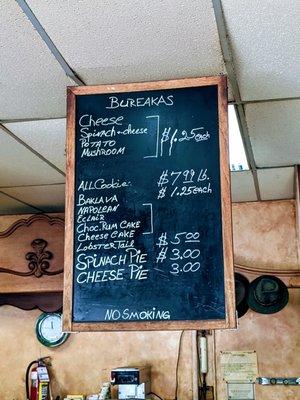 BUREAKAS
Cheese
Spinach+cheese $1.25 each
POTATO
MUSHROOM
ALL Cookie $7.99 lb.
BAKLAVA $1.25 each
NAPOLEAN
ECLAIR
CHOC. RUM CAKE
CHEESE CAKE $5.00
LOBSTER TAIL
SPINACH PIE $3.00
CHEESE PIE 3.00
NO SMOKING